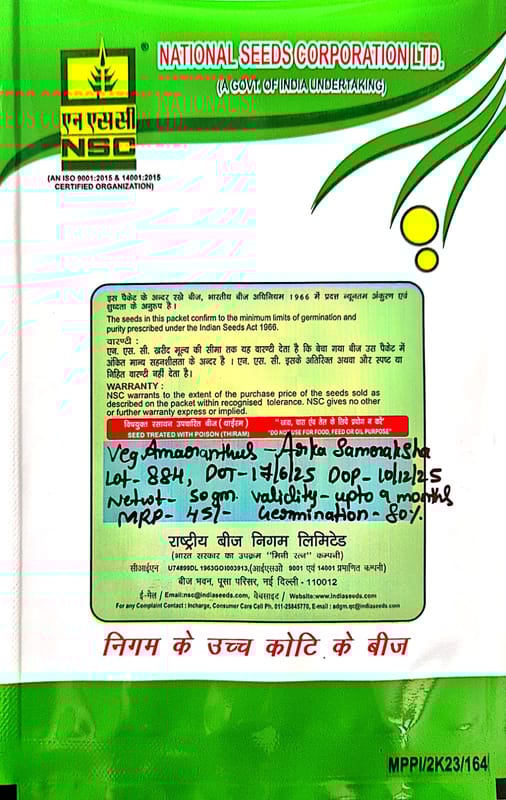 NATIONAL SEEDS CORPORATION LTD.
(A GOVT. OF INDIA UNDERTAKING)
एन एस सी
NSC
(AN ISO 9001:2015 & 14001:2015
CERTIFIED ORGANIZATION)
इस पैकेट के अन्दर रखे बीज, भारतीय बीज अधिनियम 1966 में प्रदत्त न्यूनतम अंकुरण एवं
शुध्दता के अनुरूप है।
The seeds in this packet confirm to the minimum limits of germination and
purity prescribed under the Indian Seeds Act 1966.
वारण्टी :
एन. एस. सी. खरीद मूल्य की सीमा तक यह वारण्टी देता है कि बेचा गया बीज उस पैकेट में
अंकित मान्य सहनशीलता के अन्दर है। एन. एस. सी. इसके अतिरिक्त अथवा और स्पष्ट या
निहित वारण्टी नहीं देता है।
WARRANTY :
NSC warrants to the extent of the purchase price of the seeds sold as
described on the packet within recognised tolerance. NSC gives no other
or further warranty express or implied.
विषयुक्त रसायन उपचारित बीज (थाईरम) "खाद्य, चारा एंव तेल के लिये प्रयोग न करें"
SEED TREATED WITH POISON (THIRAM) "DO NOT USE FOR FOOD, FEED OR OIL PURPOSE"
Veg Amaranthus - Arka Samraksha
Lot - 884, DOT - 17/6/25 DOP - 10/12/25
Netwt - 50 gm. validity - upto 9 months
MRP - 45/- Germination - 80%
राष्ट्रीय बीज निगम लिमिटेड
(भारत सरकार का उपक्रम "मिनी रत्न" कम्पनी)
सीआईएन U74899DL 1963GOI003913,(आईएसओ 9001 एवं 14001 प्रमाणित कम्पनी)
बीज भवन, पूसा परिसर, नई दिल्ली - 110012
ई-मेल / Email:nsc@indiaseeds.com, वेबसाइट / Website:www.indiaseeds.com
For any Complaint Contact : Incharge, Consumer Care Cell Ph. 011-25845770, E-mail : adgm.qc@indiaseeds.com
निगम के उच्च कोटि के बीज
MPPI/2K23/164